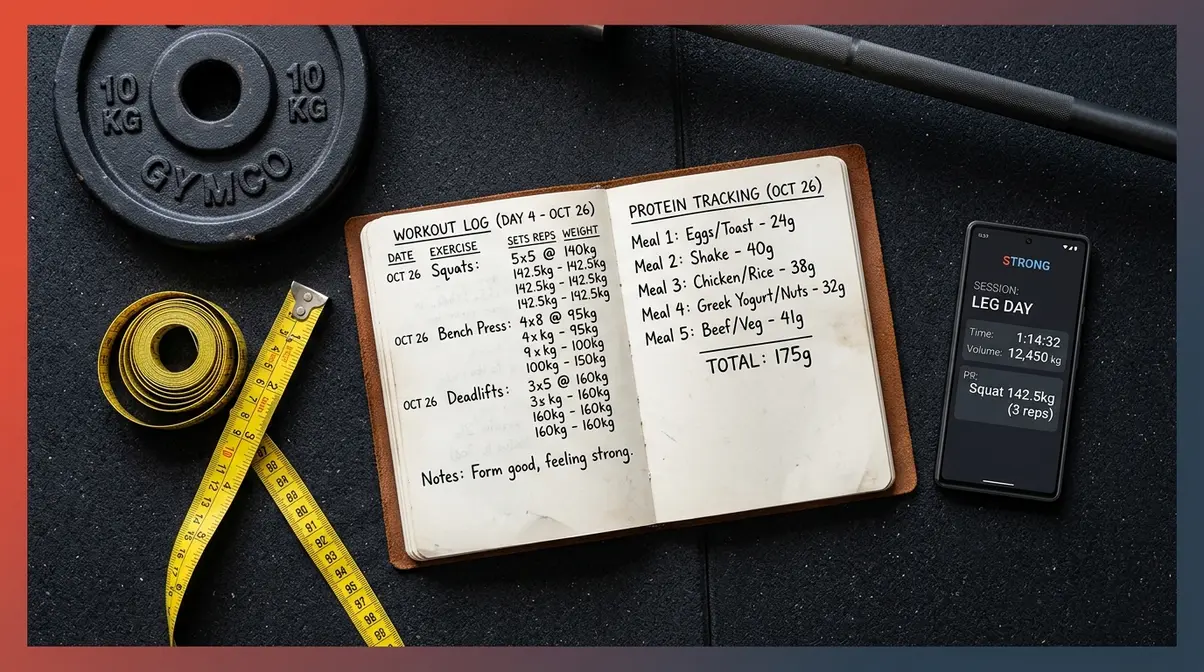 10 KG
10 KG
GYMCO
WORKOUT LOG (DAY 4 - OCT 26)
DATE EXERCISE SETS REPS WEIGHT
OCT 26 Squats: 5x5 @ 140kg
142.5kg - 142.5kg
142.5kg - 142.5kg
142.5kg - 142.5kg
OCT 26 Bench Press: 4x8 @ 95kg
4x kg - 95kg
9x kg - 100kg
100kg - 150kg
OCT 26 Deadlifts: 3x5 @ 160kg
3x kg - 160kg
160kg - 160kg
160kg - 160kg
Notes: Form good, feeling strong.
PROTEIN TRACKING (OCT 26)
Meal 1: Eggs/Toast - 24g
Meal 2: Shake - 40g
Meal 3: Chicken/Rice - 38g
Meal 4: Greek Yogurt/Nuts - 32g
Meal 5: Beef/Veg - 41g
TOTAL: 175g
STRONG
SESSION:
LEG DAY
Time: 1:14:32
Volume: 12,450 kg
PR:
Squat 142.5kg
(3 reps)